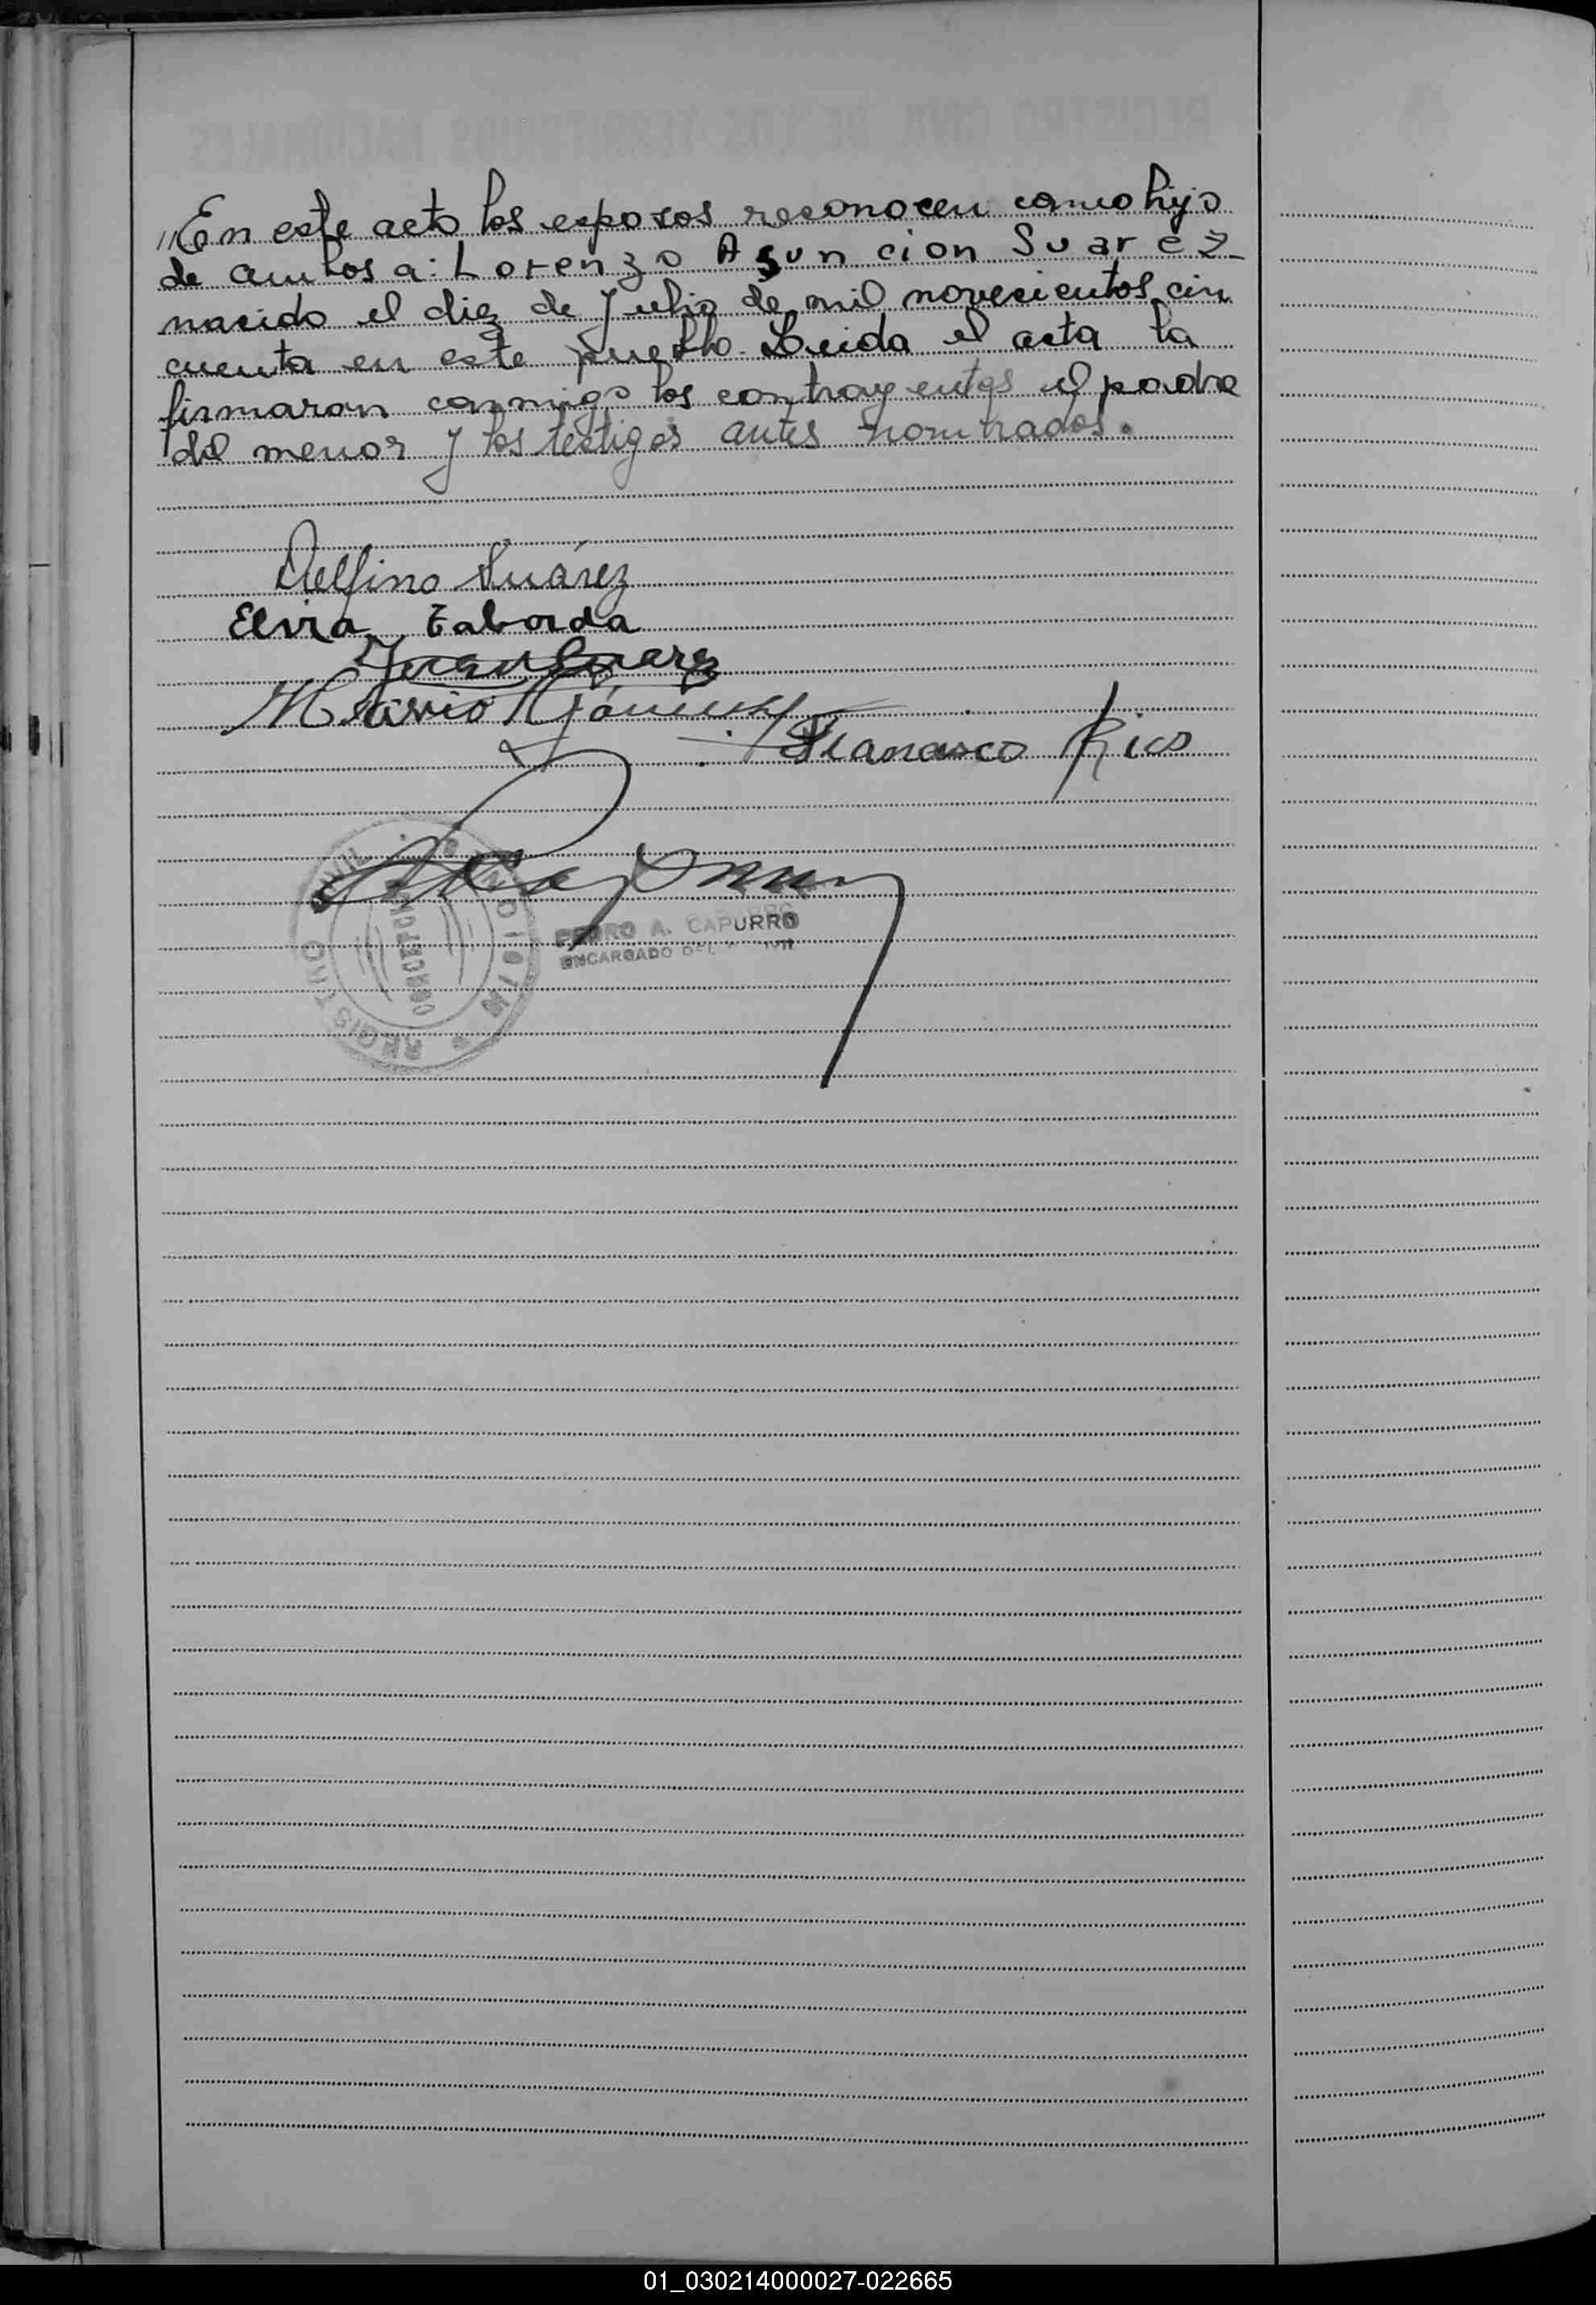 "En este acto los esposos reconocen como hijo
de ambos a: Lorenzo Asuncion Suarez_
nacido el diez de Julio de mil novecientos cin
cuenta en este pueblo. Leida el acta la
firmaron conmigo los contrayentes el padre
del menor y los testigos antes nombrados.
Delfino Suárez
Elvira Taborda
Juan Suarez
Mario Gómez
Francisco Rico
PEDRO A. CAPURRO
ENCARGADO DEL
REGISTRO CIVIL
CONCEPCION
01_030214000027-022665